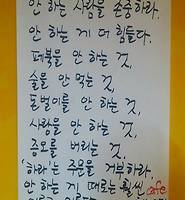 안 하는 사람을 존중하라.
안 하는 게 더 힘들다.
페북을 안 하는 것,
술을 안 먹는 것,
돈벌이를 안 하는 것,
사랑을 안 하는 것,
증오를 버리는 것,
'하라'는 주문을 거부하라.
안 하는 게 때로는 훨씬
cafe